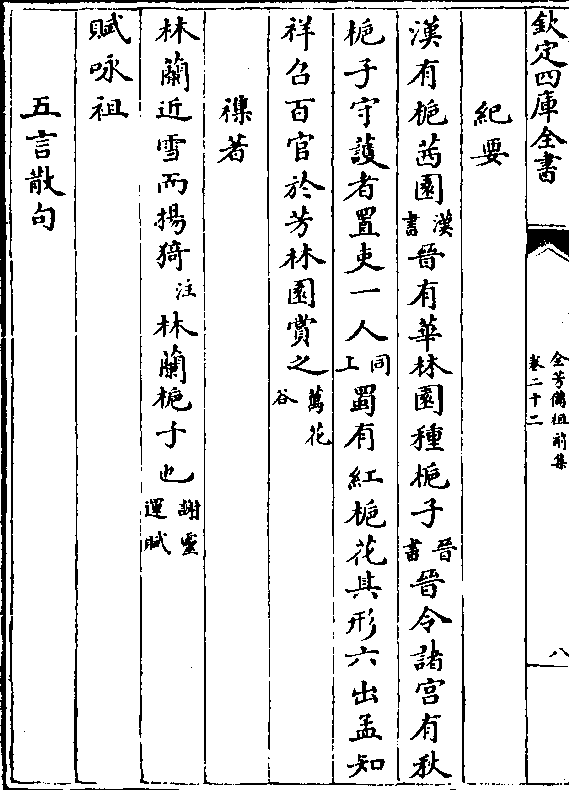 欽定四庫全書
全芳備祖前集
卷二十二
八
紀要
漢有梔茜園漢書晉有華林園種梔子晉書晉令諸宮有秋
梔子守護者置吏一人同上蜀有紅梔花其形六出孟知
祥召百官於芳林園賞之萬花谷
襍著
林蘭近雪而揚猗注林蘭梔子也謝靈運賦
賦咏祖
五言散句